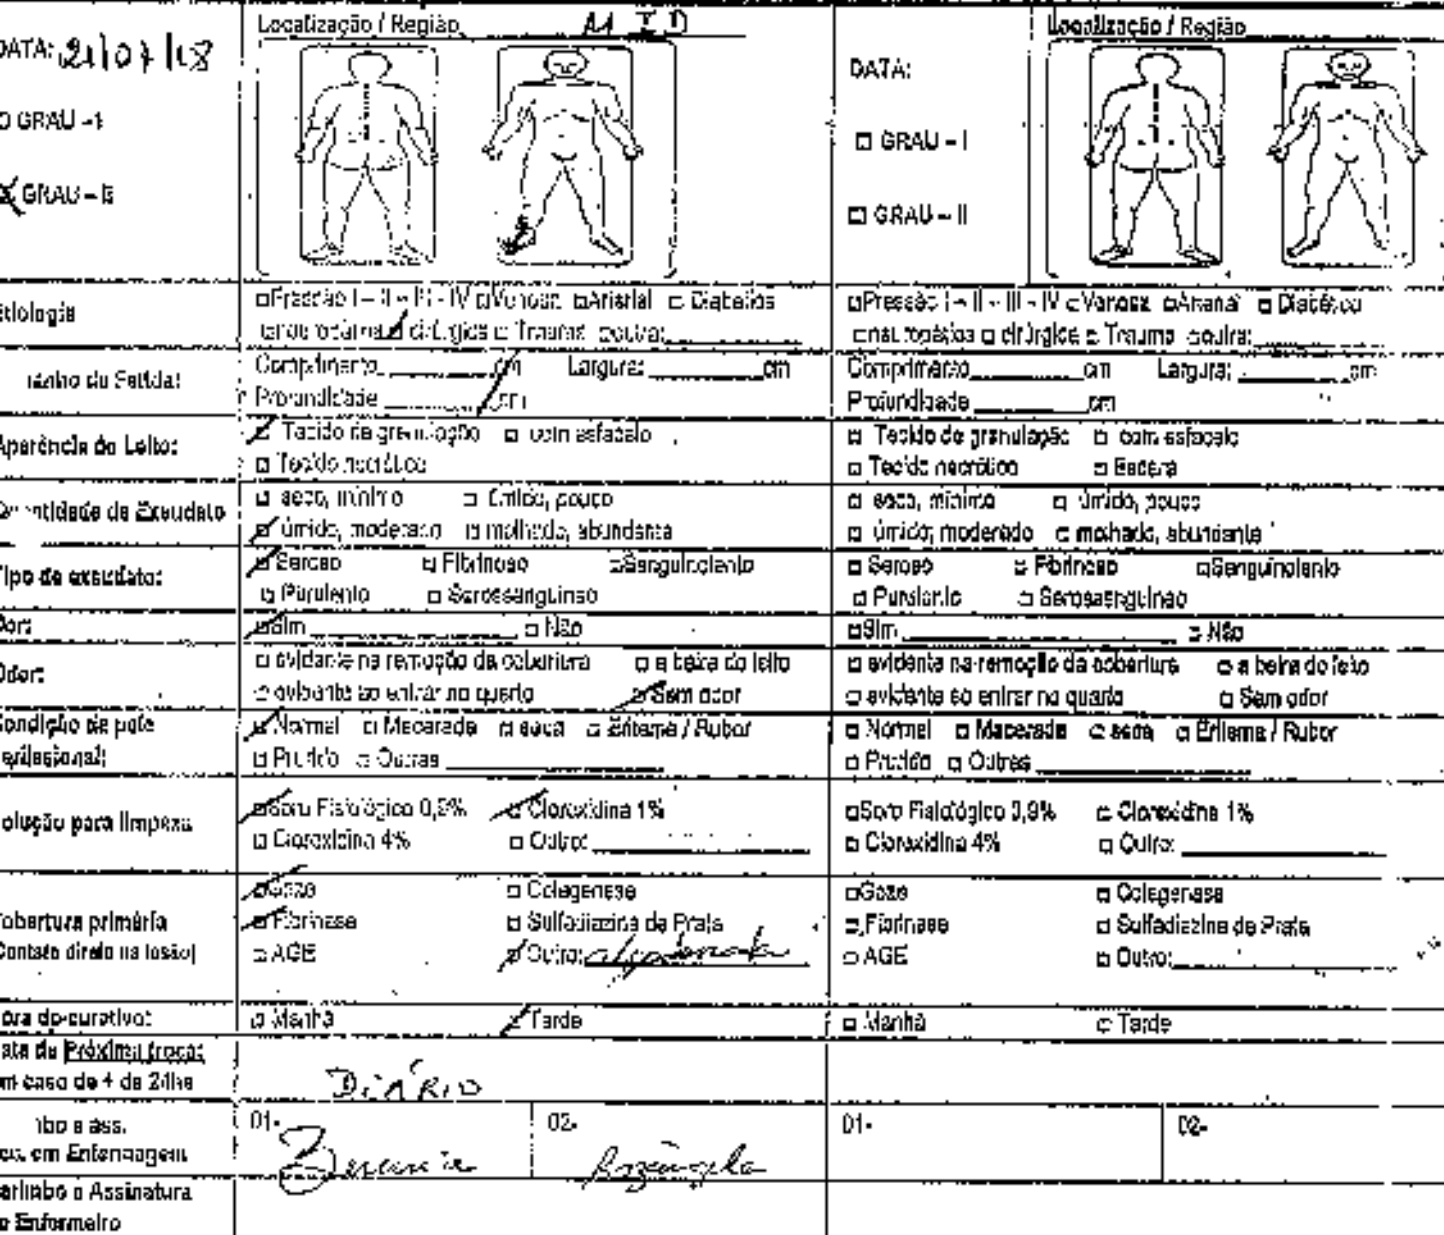 DATA: 21/07/18
Localização / Região M I D
GRAU - I
GRAU - II
DATA:
Localização / Região
GRAU - I
GRAU - II
Etiologia
Pressão I - II - III - IV Venosa Arterial Diabetes
cirúrgica Trauma outra:
Pressão I - II - III - IV Venosa Arterial Diabético
cirúrgica Trauma outra:
Comprimento cm Largura: cm
Profundidade cm
Comprimento cm Largura: cm
Profundidade cm
Aparência do Leito:
Tecido de granulação com esfacelo
Tecido necrótico
Tecido de granulação com esfacelo
Tecido necrótico Escara
Quantidade de Exsudato
seco, mínimo úmido, pouco
úmido, moderado molhado, abundante
seco, mínimo úmido, pouco
úmido, moderado molhado, abundante
Tipo de exsudato:
Seroso Fibrinoso Sanguinolento
Purulento Serossanguíneo
Seroso Fibrinoso Sanguinolento
Purulento Serosasnguíneo
Dor:
Sim Não
Sim Não
Odor:
evidente na remoção da cobertura a beira do leito
evidente ao entrar no quarto Sem odor
evidente na remoção da cobertura a beira do leito
evidente ao entrar no quarto Sem odor
Condição da pele
Normal Macerada seca Eritema / Rubor
Prurido Outras
Normal Macerada seca Eritema / Rubor
Prurido Outras
olução para limpeza
Soro Fisiológico 0,9% Clorexidina 1%
Clorexidina 4% Outro:
Soro Fisiológico 0,9% Clorexidina 1%
Clorexidina 4% Outro:
obertura primária
Contato direto na lesão)
Gaze Colagenase
Fibrinase Sulfadiazina de Prata
AGE Outro:
Gaze Colagenase
Fibrinase Sulfadiazina de Prata
AGE Outro:
ora do curativo:
Manhã Tarde
Manhã Tarde
ata da Próxima troca:
m caso de + de 24hs
DIÁRIO
ibo e ass.
em Enfermagem
01-
02- Rozângela
01-
02-
arimbo e Assinatura
o Enfermeiro